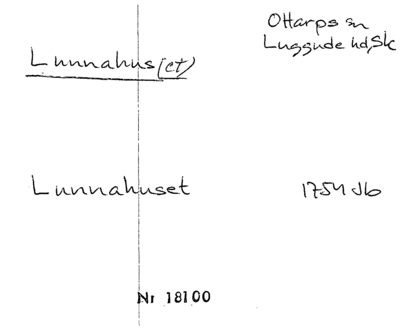 Ottarps sn
Luggude hd, Sk
Lunnahus(et)
Lunnahuset 1754 Jb
Nr 18100